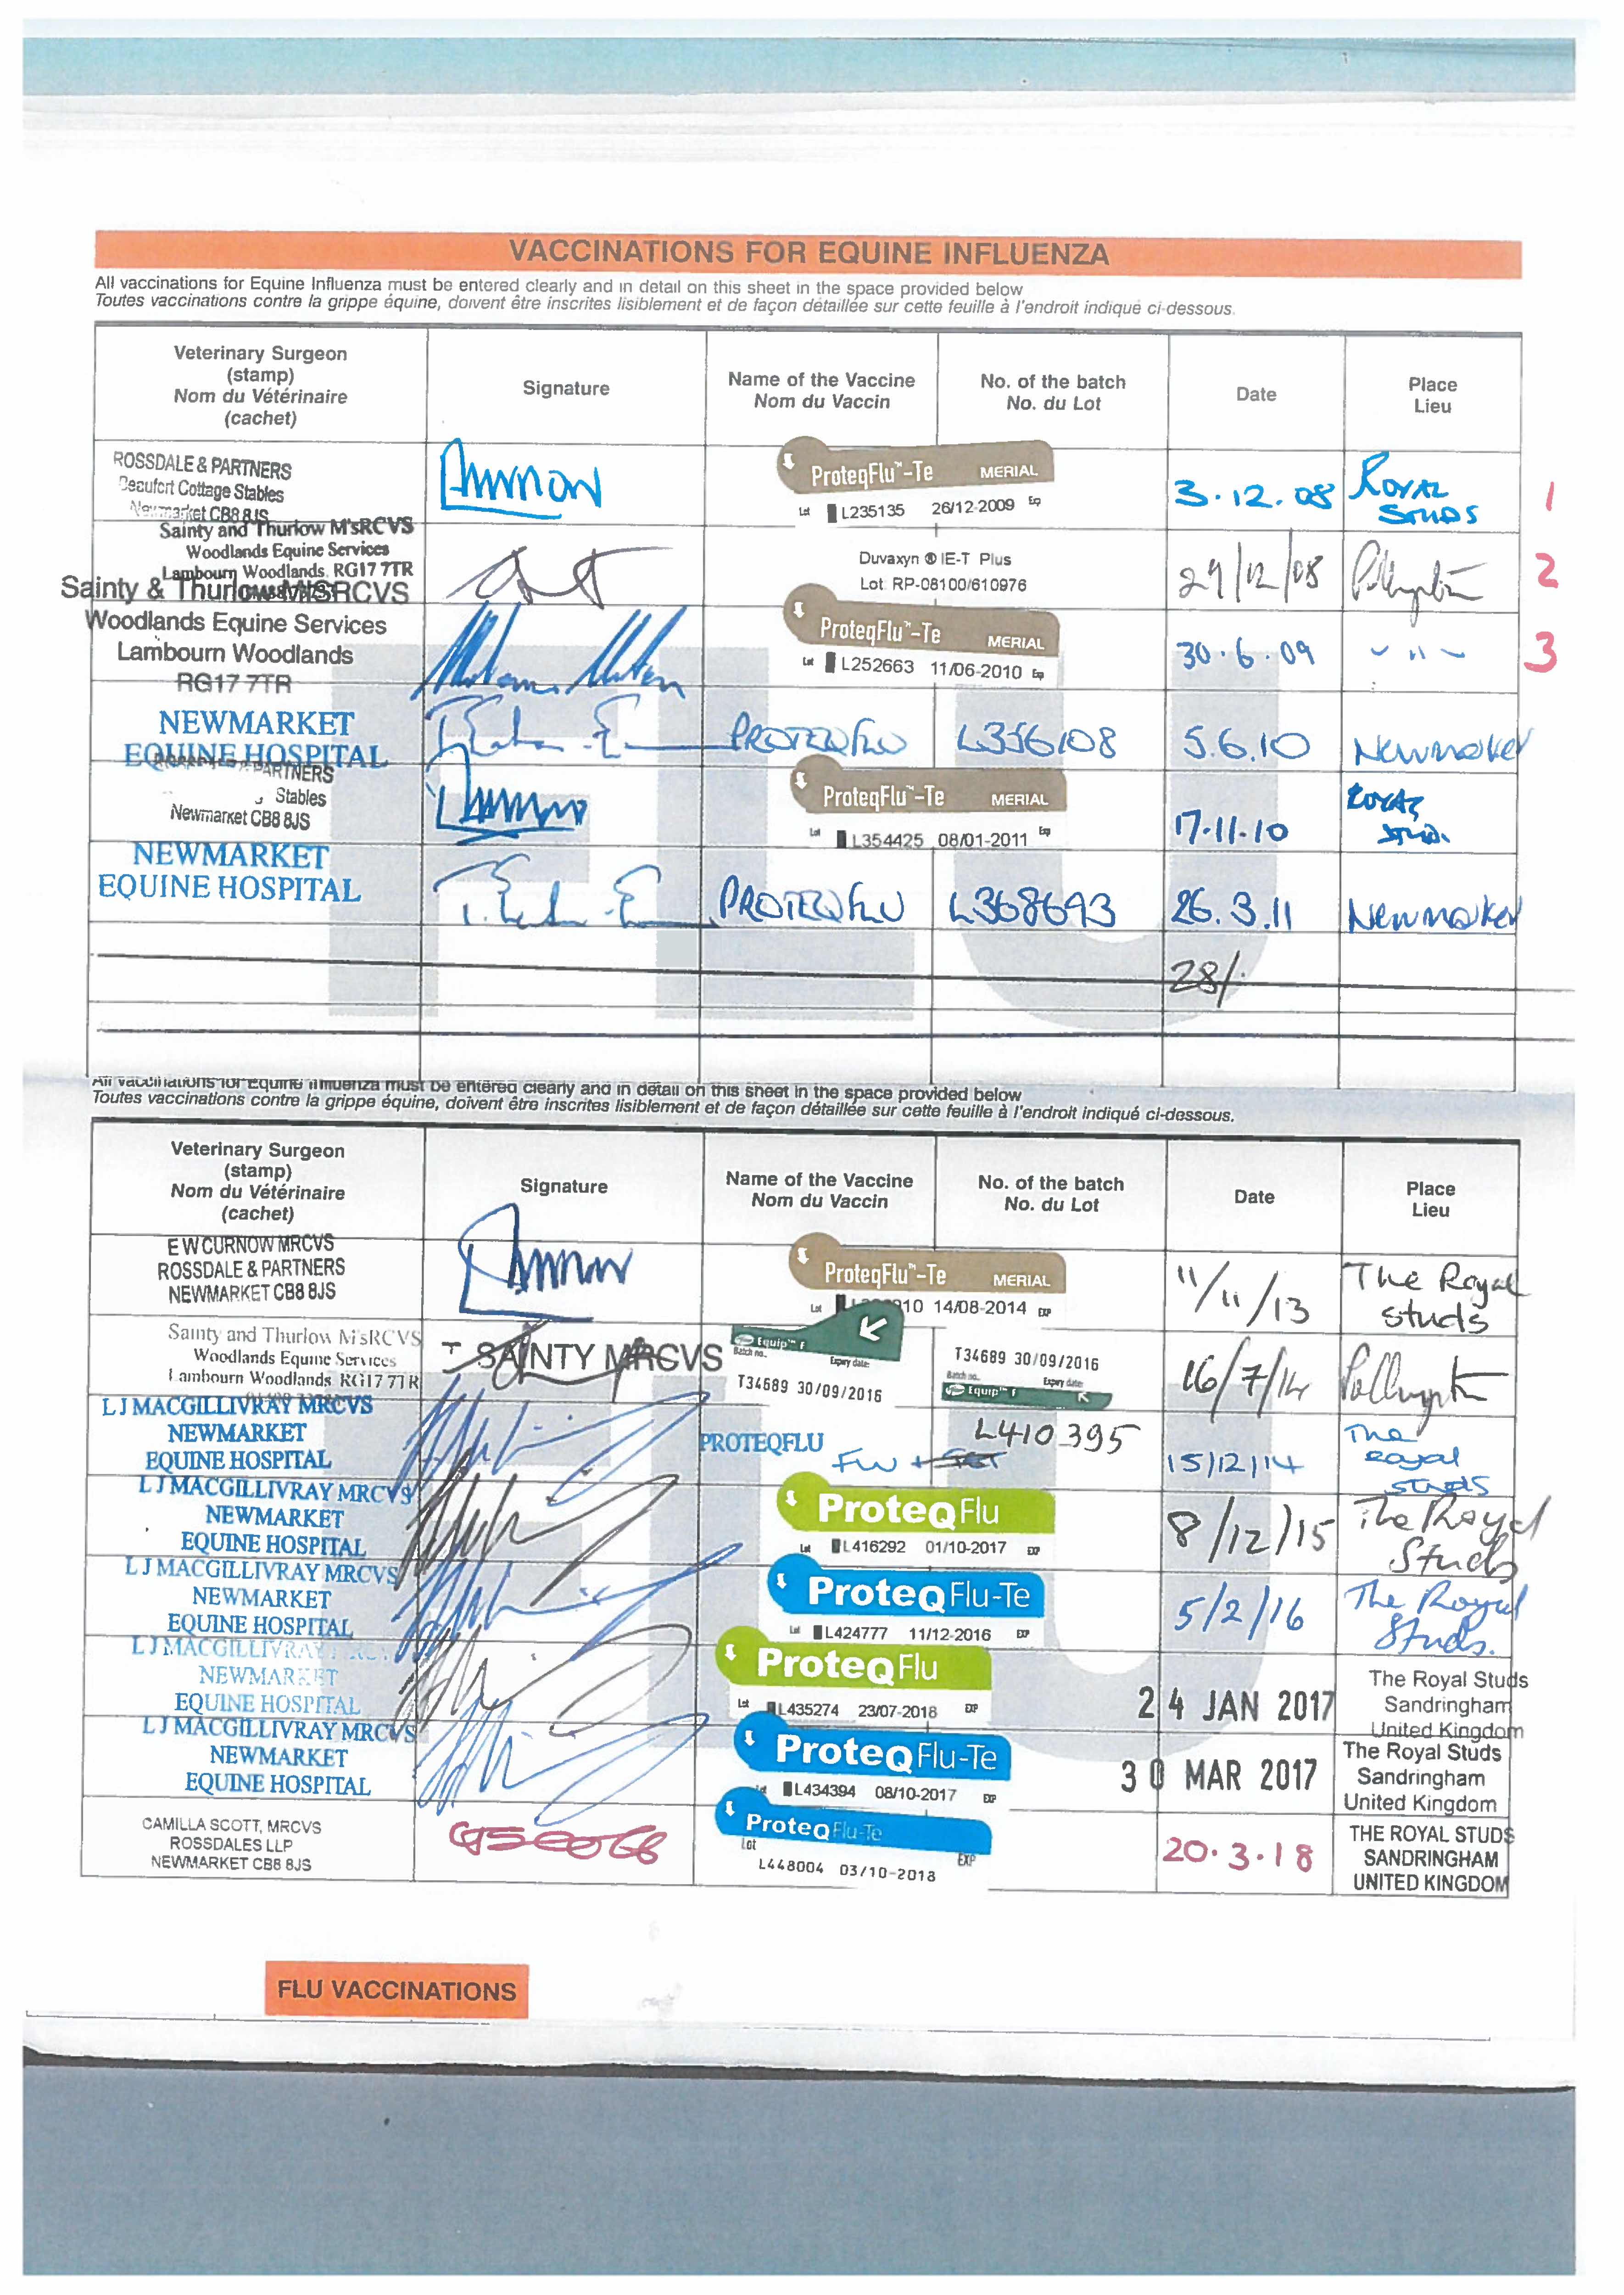 VACCINATIONS FOR EQUINE INFLUENZA
All vaccinations for Equine Influenza must be entered clearly and in detail on this sheet in the space provided below
Toutes vaccinations contre la grippe équine, doivent être inscrites lisiblement et de façon détaillée sur cette feuille à l'endroit indiqué ci-dessous.
Veterinary Surgeon
(stamp)
Nom du Vétérinaire
(cachet)
Signature
Name of the Vaccine
Nom du Vaccin
No. of the batch
No. du Lot
Date
Place
Lieu
ROSSDALE & PARTNERS
Beaufort Cottage Stables
Newmarket CB8 8JS
ProteqFlu™-Te MERIAL
Lot L235135 26/12-2009 Exp
3.12.08
ROYAL
STUDS
1
Sainty and Thurlow M'sRCVS
Woodlands Equine Services
Lambourn Woodlands. RG17 7TR
Duvaxyn ® IE-T Plus
Lot: RP-08100/610976
29/12/08
2
Sainty & Thurlow M'SRCVS
Woodlands Equine Services
Lambourn Woodlands
RG17 7TR
ProteqFlu™-Te MERIAL
Lot L252663 11/06-2010 Exp
30.6.09
~ " ~
3
NEWMARKET
EQUINE HOSPITAL
PROTEQFLU
L356108
5.6.10
Newmarket
PARTNERS
Stables
Newmarket CB8 8JS
ProteqFlu™-Te MERIAL
Lot L354425 08/01-2011 Exp
17.11.10
ROYAL
STUD.
NEWMARKET
EQUINE HOSPITAL
PROTEQFLU
L368693
26.3.11
Newmarket
28/
FLU
All vaccinations for Equine Influenza must be entered clearly and in detail on this sheet in the space provided below
Toutes vaccinations contre la grippe équine, doivent être inscrites lisiblement et de façon détaillée sur cette feuille à l'endroit indiqué ci-dessous.
Veterinary Surgeon
(stamp)
Nom du Vétérinaire
(cachet)
Signature
Name of the Vaccine
Nom du Vaccin
No. of the batch
No. du Lot
Date
Place
Lieu
E W CURNOW MRCVS
ROSSDALE & PARTNERS
NEWMARKET CB8 8JS
ProteqFlu™-Te MERIAL
Lot 10 14/08-2014 EXP
11/11/13
The Royal
studs
Sainty and Thurlow M'sRCVS
Woodlands Equine Services
Lambourn Woodlands. RG17 7TR
T SAINTY MRCVS
Equip™ F
Batch no. Expiry date:
T34689 30/09/2016
T34689 30/09/2016
Batch no. Expiry date
Equip™ F
16/7/14
L J MACGILLIVRAY MRCVS
NEWMARKET
EQUINE HOSPITAL
PROTEQFLU
L410395
15/12/14
The
Royal
studs
L J MACGILLIVRAY MRCVS
NEWMARKET
EQUINE HOSPITAL
ProteqFlu
Lot L416292 01/10-2017 EXP
8/12/15
The Royal
Studs
L J MACGILLIVRAY MRCVS
NEWMARKET
EQUINE HOSPITAL
ProteqFlu-Te
Lot L424777 11/12-2016 EXP
5/2/16
The Royal
Studs.
L J MACGILLIVRAY
NEWMARKET
EQUINE HOSPITAL
ProteqFlu
Lot L435274 23/07-2018 EXP
24 JAN 2017
The Royal Studs
Sandringham
United Kingdom
L J MACGILLIVRAY MRCVS
NEWMARKET
EQUINE HOSPITAL
ProteqFlu-Te
Lot L434394 08/10-2017 EXP
30 MAR 2017
The Royal Studs
Sandringham
United Kingdom
CAMILLA SCOTT, MRCVS
ROSSDALES LLP
NEWMARKET CB8 8JS
ProteqFlu-Te
Lot EXP
L448004 03/10-2018
20.3.18
THE ROYAL STUDS
SANDRINGHAM
UNITED KINGDOM
FLU
FLU VACCINATIONS